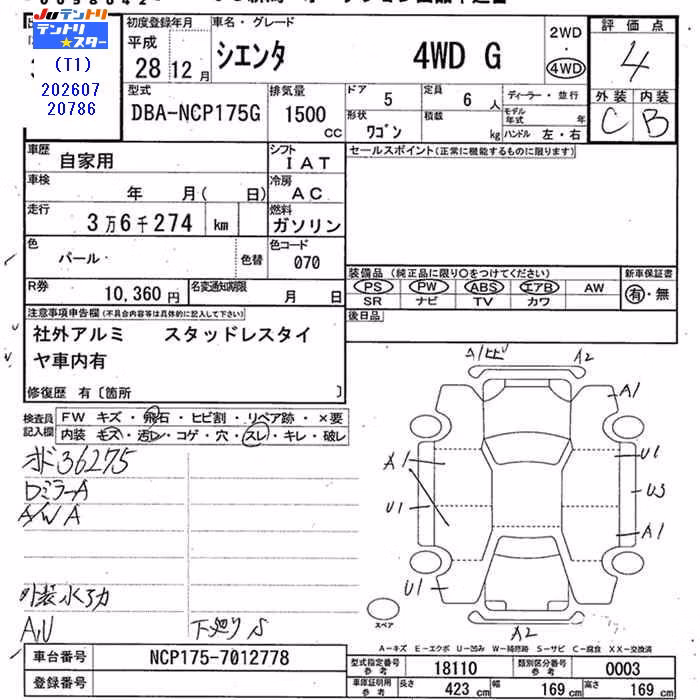 Juテントリ
テントリ★スター
(T1)
202607
20786
初度登録年月
平成
28 12月
車名・グレード
シエンタ 4WD G
2WD
・
4WD
評価点
4
外装 内装
C B
型式
DBA-NCP175G
排気量
1500
cc
ドア
5
定員
6 人
形状
ワゴン
積載
kg
ディーラー・並行
モデル年式 年
ハンドル 左・右
車歴
自家用
シフト
IAT
車検
年 月( 日)
冷房
AC
走行
3万6千274 km
燃料
ガソリン
色
パール
色替
色コード
070
R券
10,360円
名変通知期限
月 日
セールスポイント(正常に機能するものに限ります)
装備品 (純正品に限り○をつけてください)
PS PW ABS エアB AW
SR ナビ TV カワ
新車保証書
有・無
後日品
注意事項申告欄(不具合内容等は具体的に記入して下さい)
社外アルミ スタッドレスタイ
ヤ車内有
修復歴 有〔箇所 〕
検査員
記入欄
FW キズ・飛石・ヒビ割・リペア跡・×要
内装 キズ・汚レ・コゲ・穴・スレ・キレ・破レ
36275
ロミラーA
A/W A
A,U
A1ヒビ
A2
A1
A1
U1
U1
U3
A1
U1
A2
スペア
A-キズ E-エクボ U-凹み W-補修跡 S-サビ C-腐食 XX-交換済
車台番号
NCP175-7012778
登録番号
型式指定番号
参考
18110
類別区分番号
参考
0003
車庫証明用
参考
長さ
423 cm
幅
169 cm
高さ
169 cm